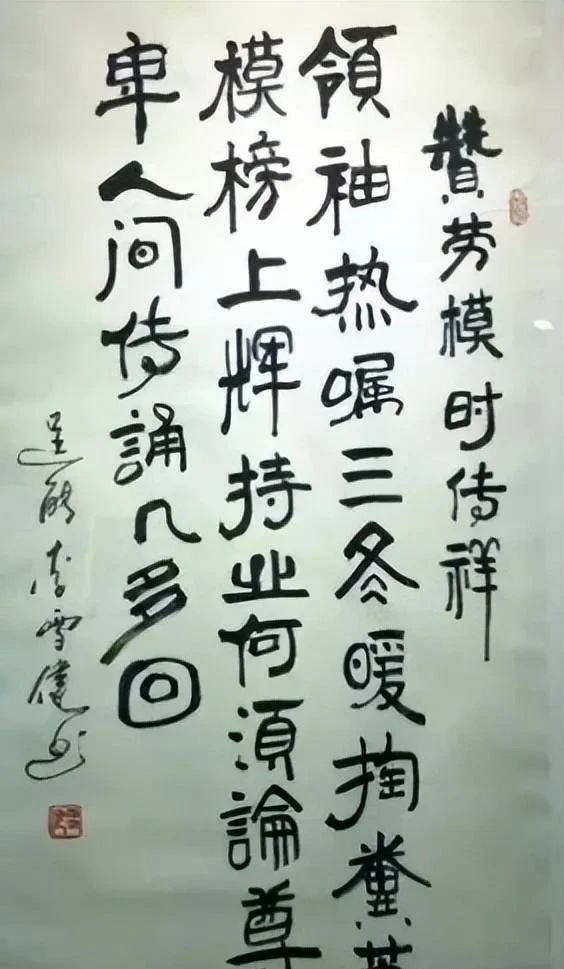 贊劳模时传祥
領袖热嘱三冬暖掏糞英
模榜上辉持业何須論尊
卑人间传誦几多回
逞能李雪健